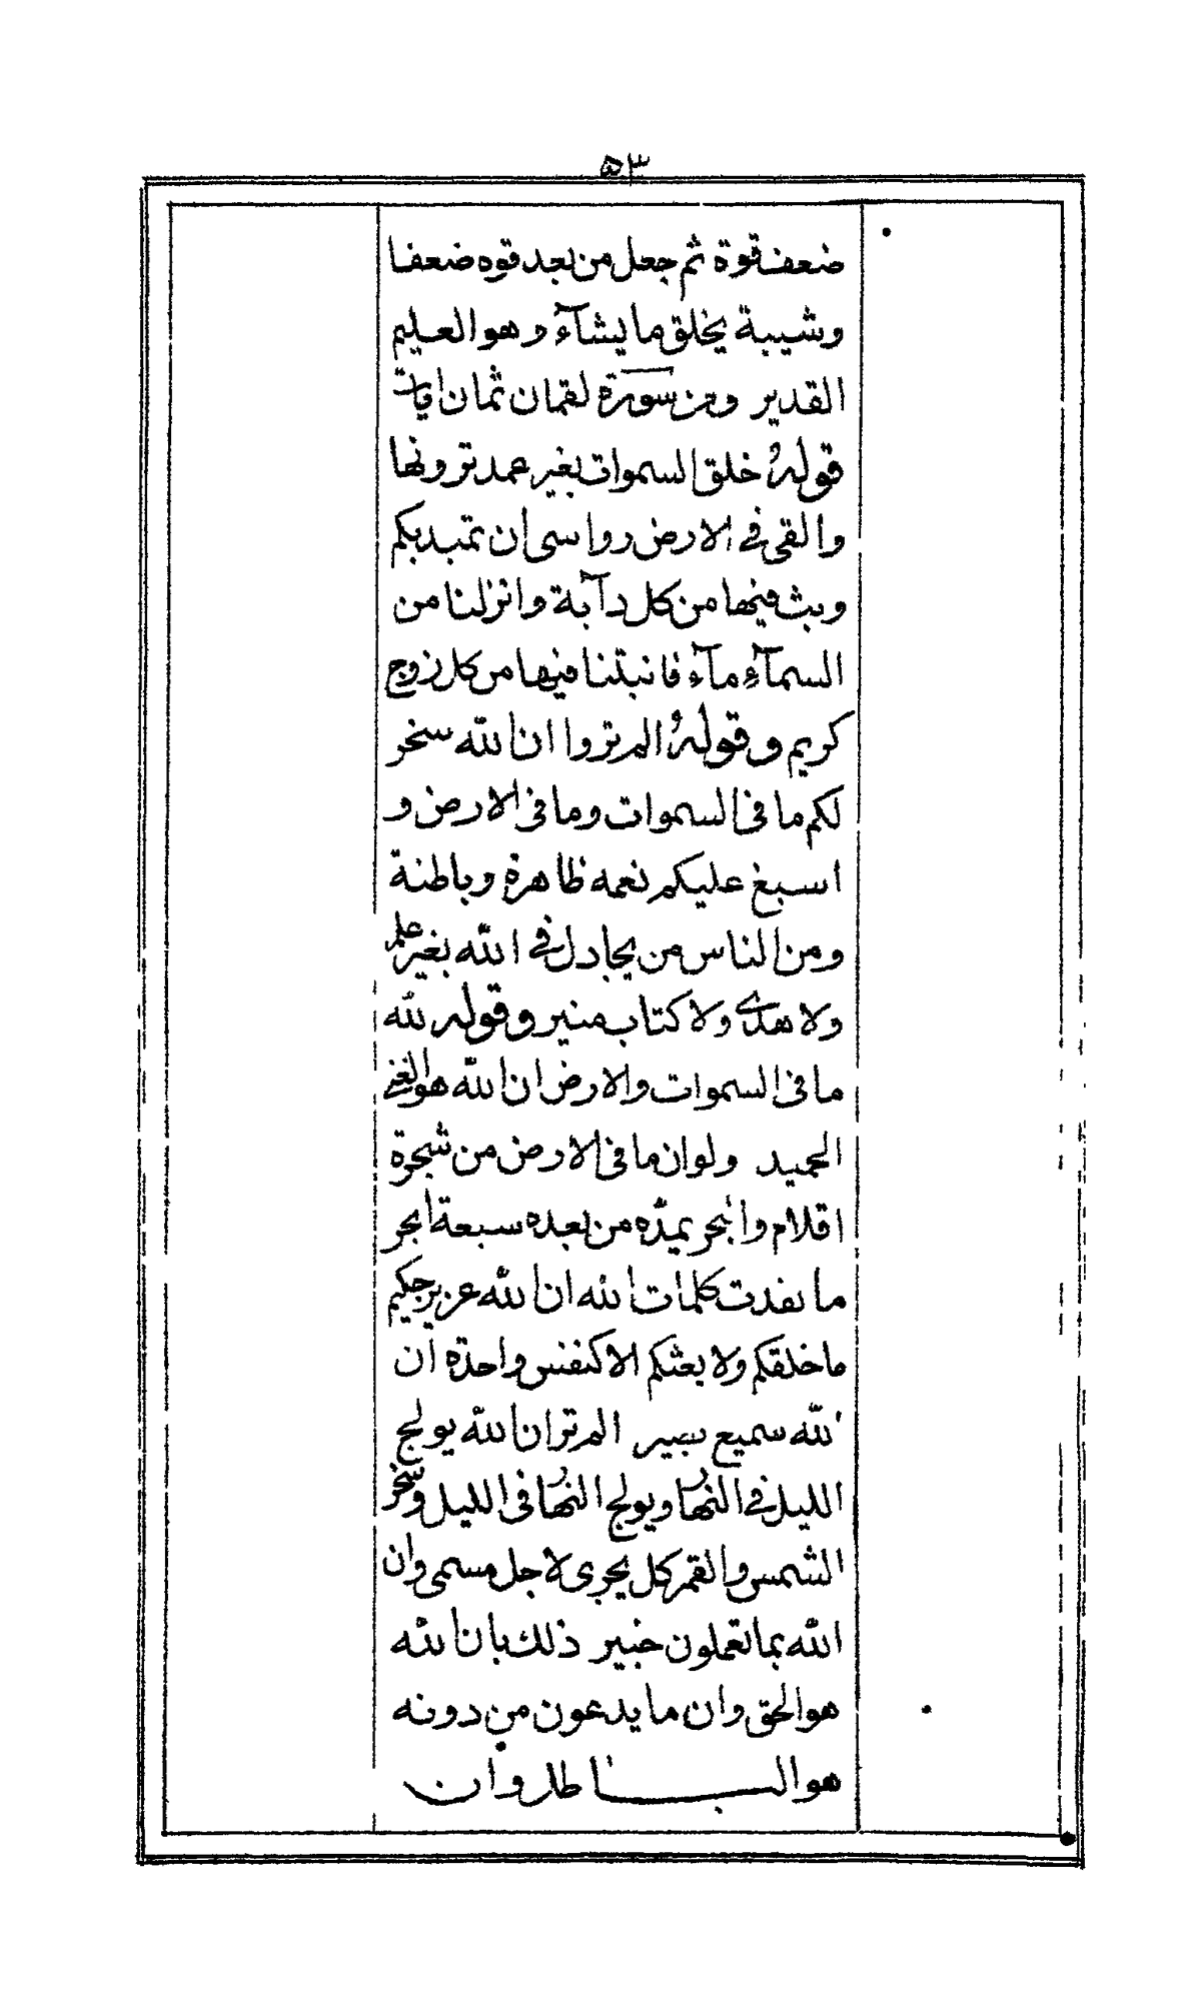 ۵۳
ضعف قوة ثم جعل من بعد قوه ضعفا
وشيبة يخلق ما يشآء وهو العليم
القدير ومن سورة لقمان ثمان ايات
قوله خلق السموات بغير عمد ترونها
والقى في الارض رواسى ان تميد بكم
وبث فيها من كل دآبة وانزلنا من
السمآء مآء فانبتنا فيها من كل زوج
كريم وقوله الم تروا ان الله سخر
لكم ما فى السموات وما فى الارض و
اسبغ عليكم نعمه ظاهرة وباطنة
ومن الناس من يجادل في الله بغير علم
ولا هدى ولا كتاب منير وقوله لله
ما فى السموات والارض ان الله هو الغني
الحميد ولو ان ما فى الارض من شجرة
اقلام والبحر يمدّه من بعده سبعة ابحر
ما نفدت كلمات الله ان الله عزيز حكيم
ما خلقكم ولا بعثكم الا كنفس واحدة ان
الله سميع بصير الم تر ان الله يولج
الليل في النهار ويولج النهار فى الليل وسخر
الشمس والقمر كل يجرى لاجل مسمى وان
الله بما تعملون خبير ذلك بان الله
هو الحق وان ما يدعون من دونه
هو الباطل وان